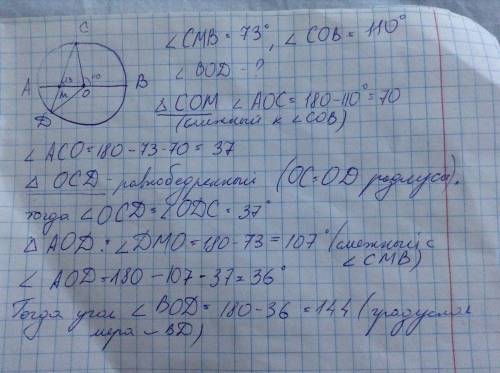 C
∠CMB = 73°, ∠COB = 110°
∠BOD - ?
A 73 110 B
M O
D
△ COM ∠AOC = 180-110° = 70
(смежный к ∠COB)
∠ACO = 180 - 73 - 70 = 37
△ OCD - равнобедренный (OC=OD радиусы).
тогда ∠OCD = ∠ODC = 37°
△ AOD: ∠DMO = 180 - 73 = 107° (смежный с
∠CMB)
∠ AOD = 180 - 107 - 37 = 36°
Тогда угол ∠BOD = 180 - 36 = 144 (градусная
мера - BD)